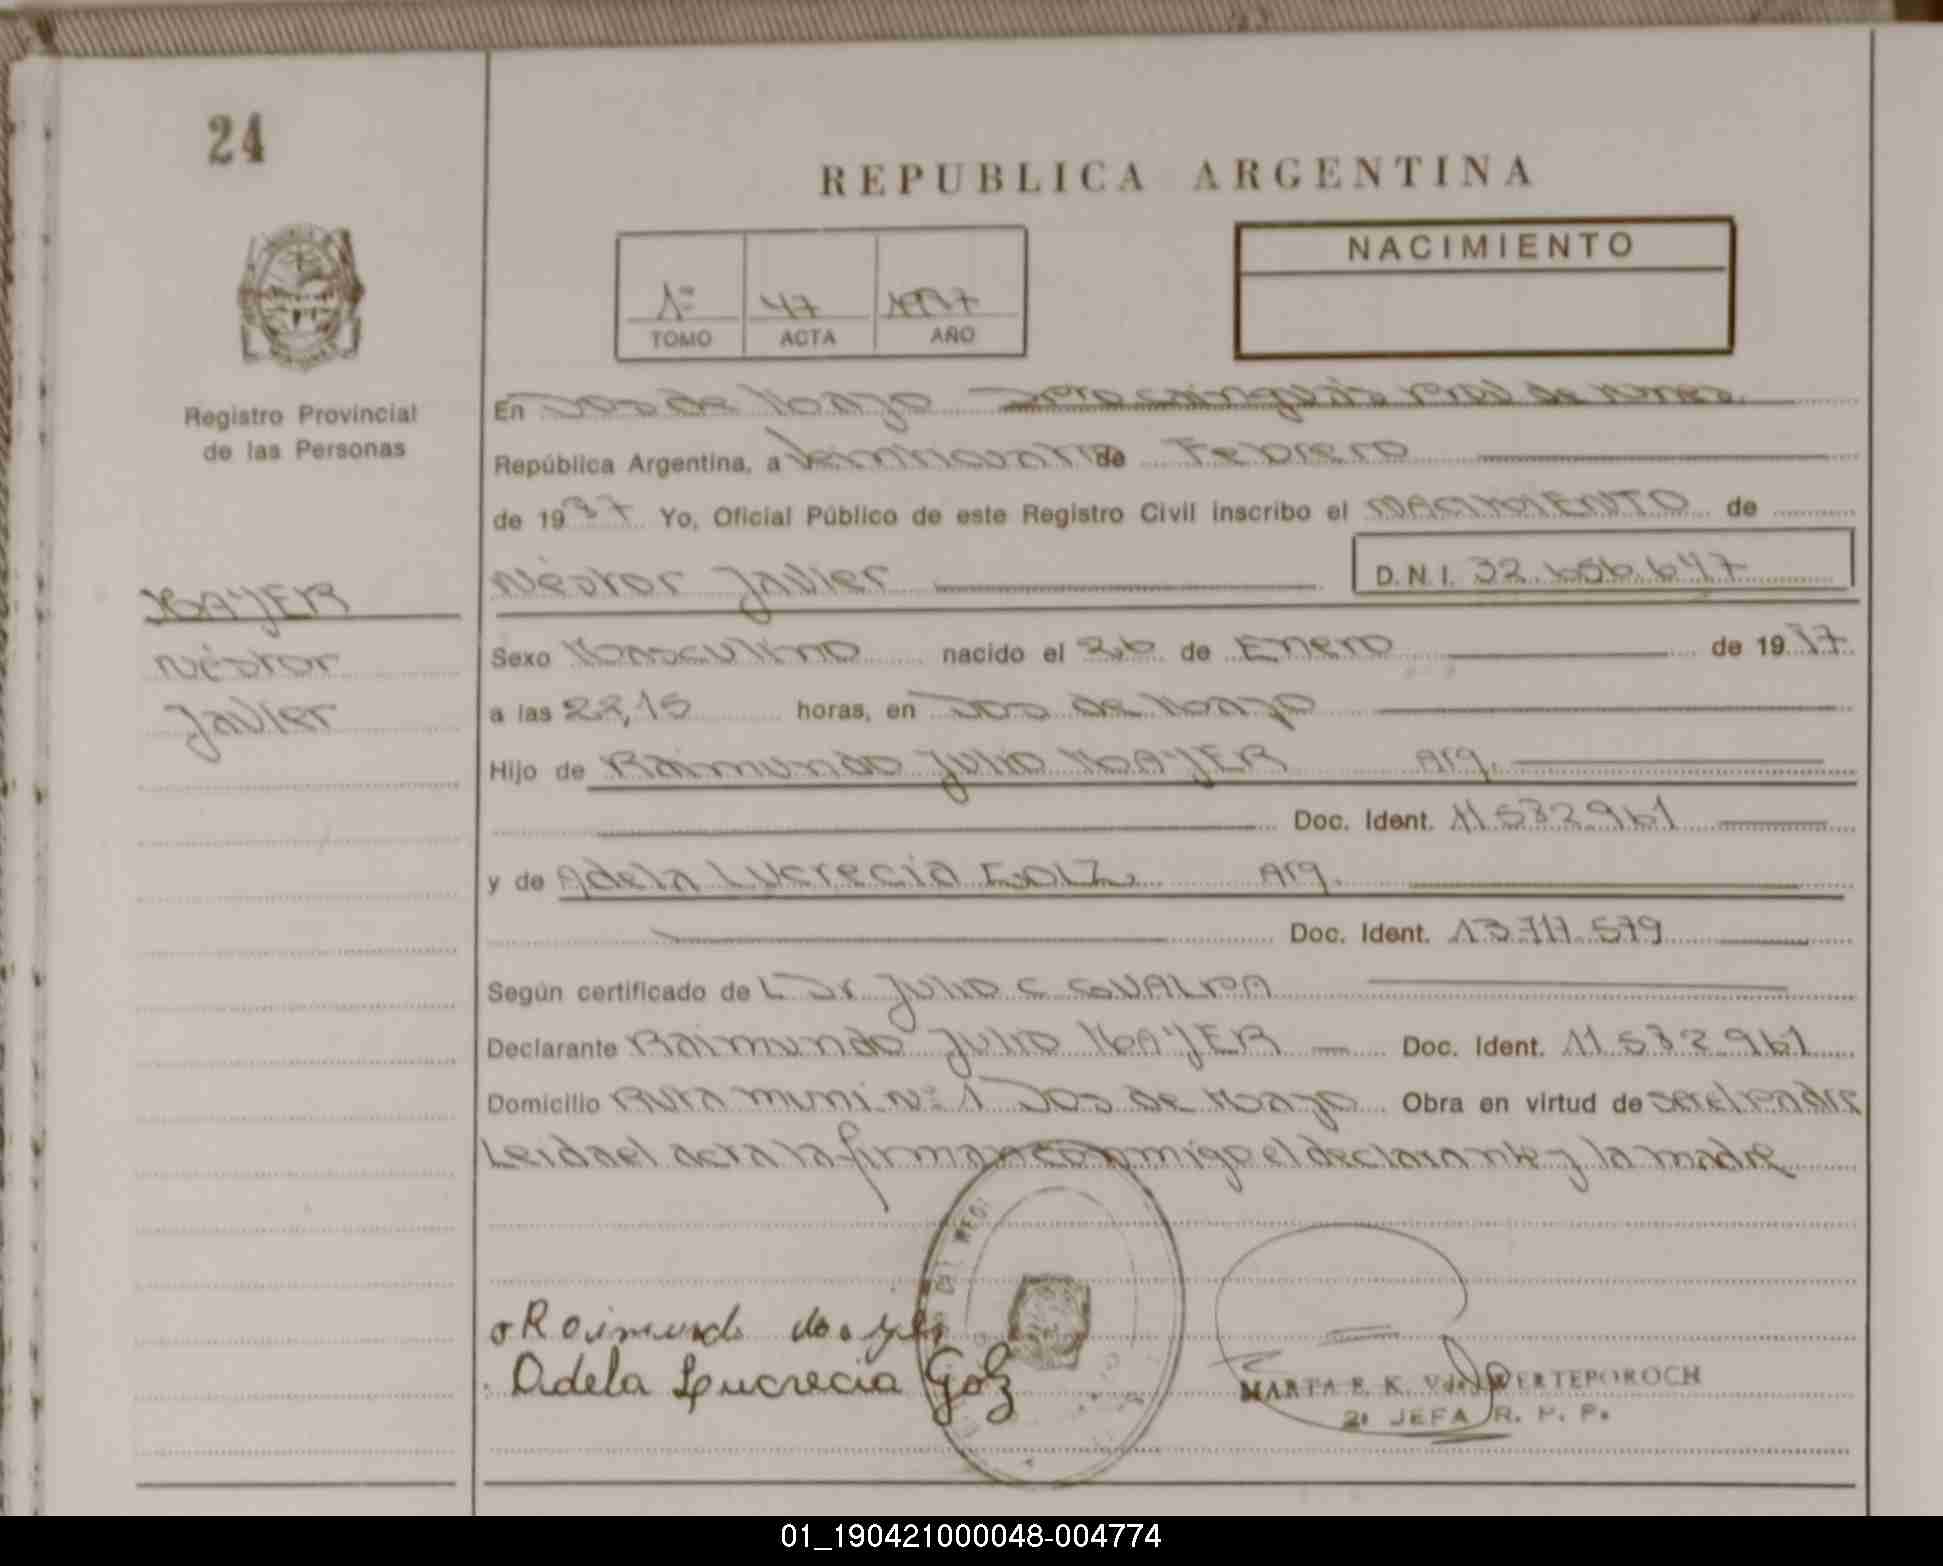 24
REPUBLICA ARGENTINA
NACIMIENTO
1º 47
TOMO ACTA AÑO
Registro Provincial
de las Personas
En Dos de Mayo
República Argentina, a Veinticuatro de Febrero
de 19 Yo, Oficial Público de este Registro Civil inscribo el NACIMIENTO de
Néstor Javier D.N.I. 32.656.647
MAYER
Néstor
Javier
Sexo Masculino nacido el 26 de Enero de 19
a las 22,15 horas, en Dos de Mayo
Hijo de Raimundo Julio MAYER Arg.
Doc. Ident. 11.532.961
y de Adela Lucrecia GOLZ Arg.
Doc. Ident. 13.711.579
Según certificado de Dr Julio C
Declarante Raimundo Julio MAYER Doc. Ident. 11.532.961
Domicilio Ruta Muni. Nº 1 Dos de Mayo Obra en virtud de ser el padre
Leida el acta la firman conmigo el declarante y la madre
Raimundo
Adela Lucrecia Golz
MARTA E. K. WERTEPOROCH
JEFA R. P. P.
01_190421000048-004774